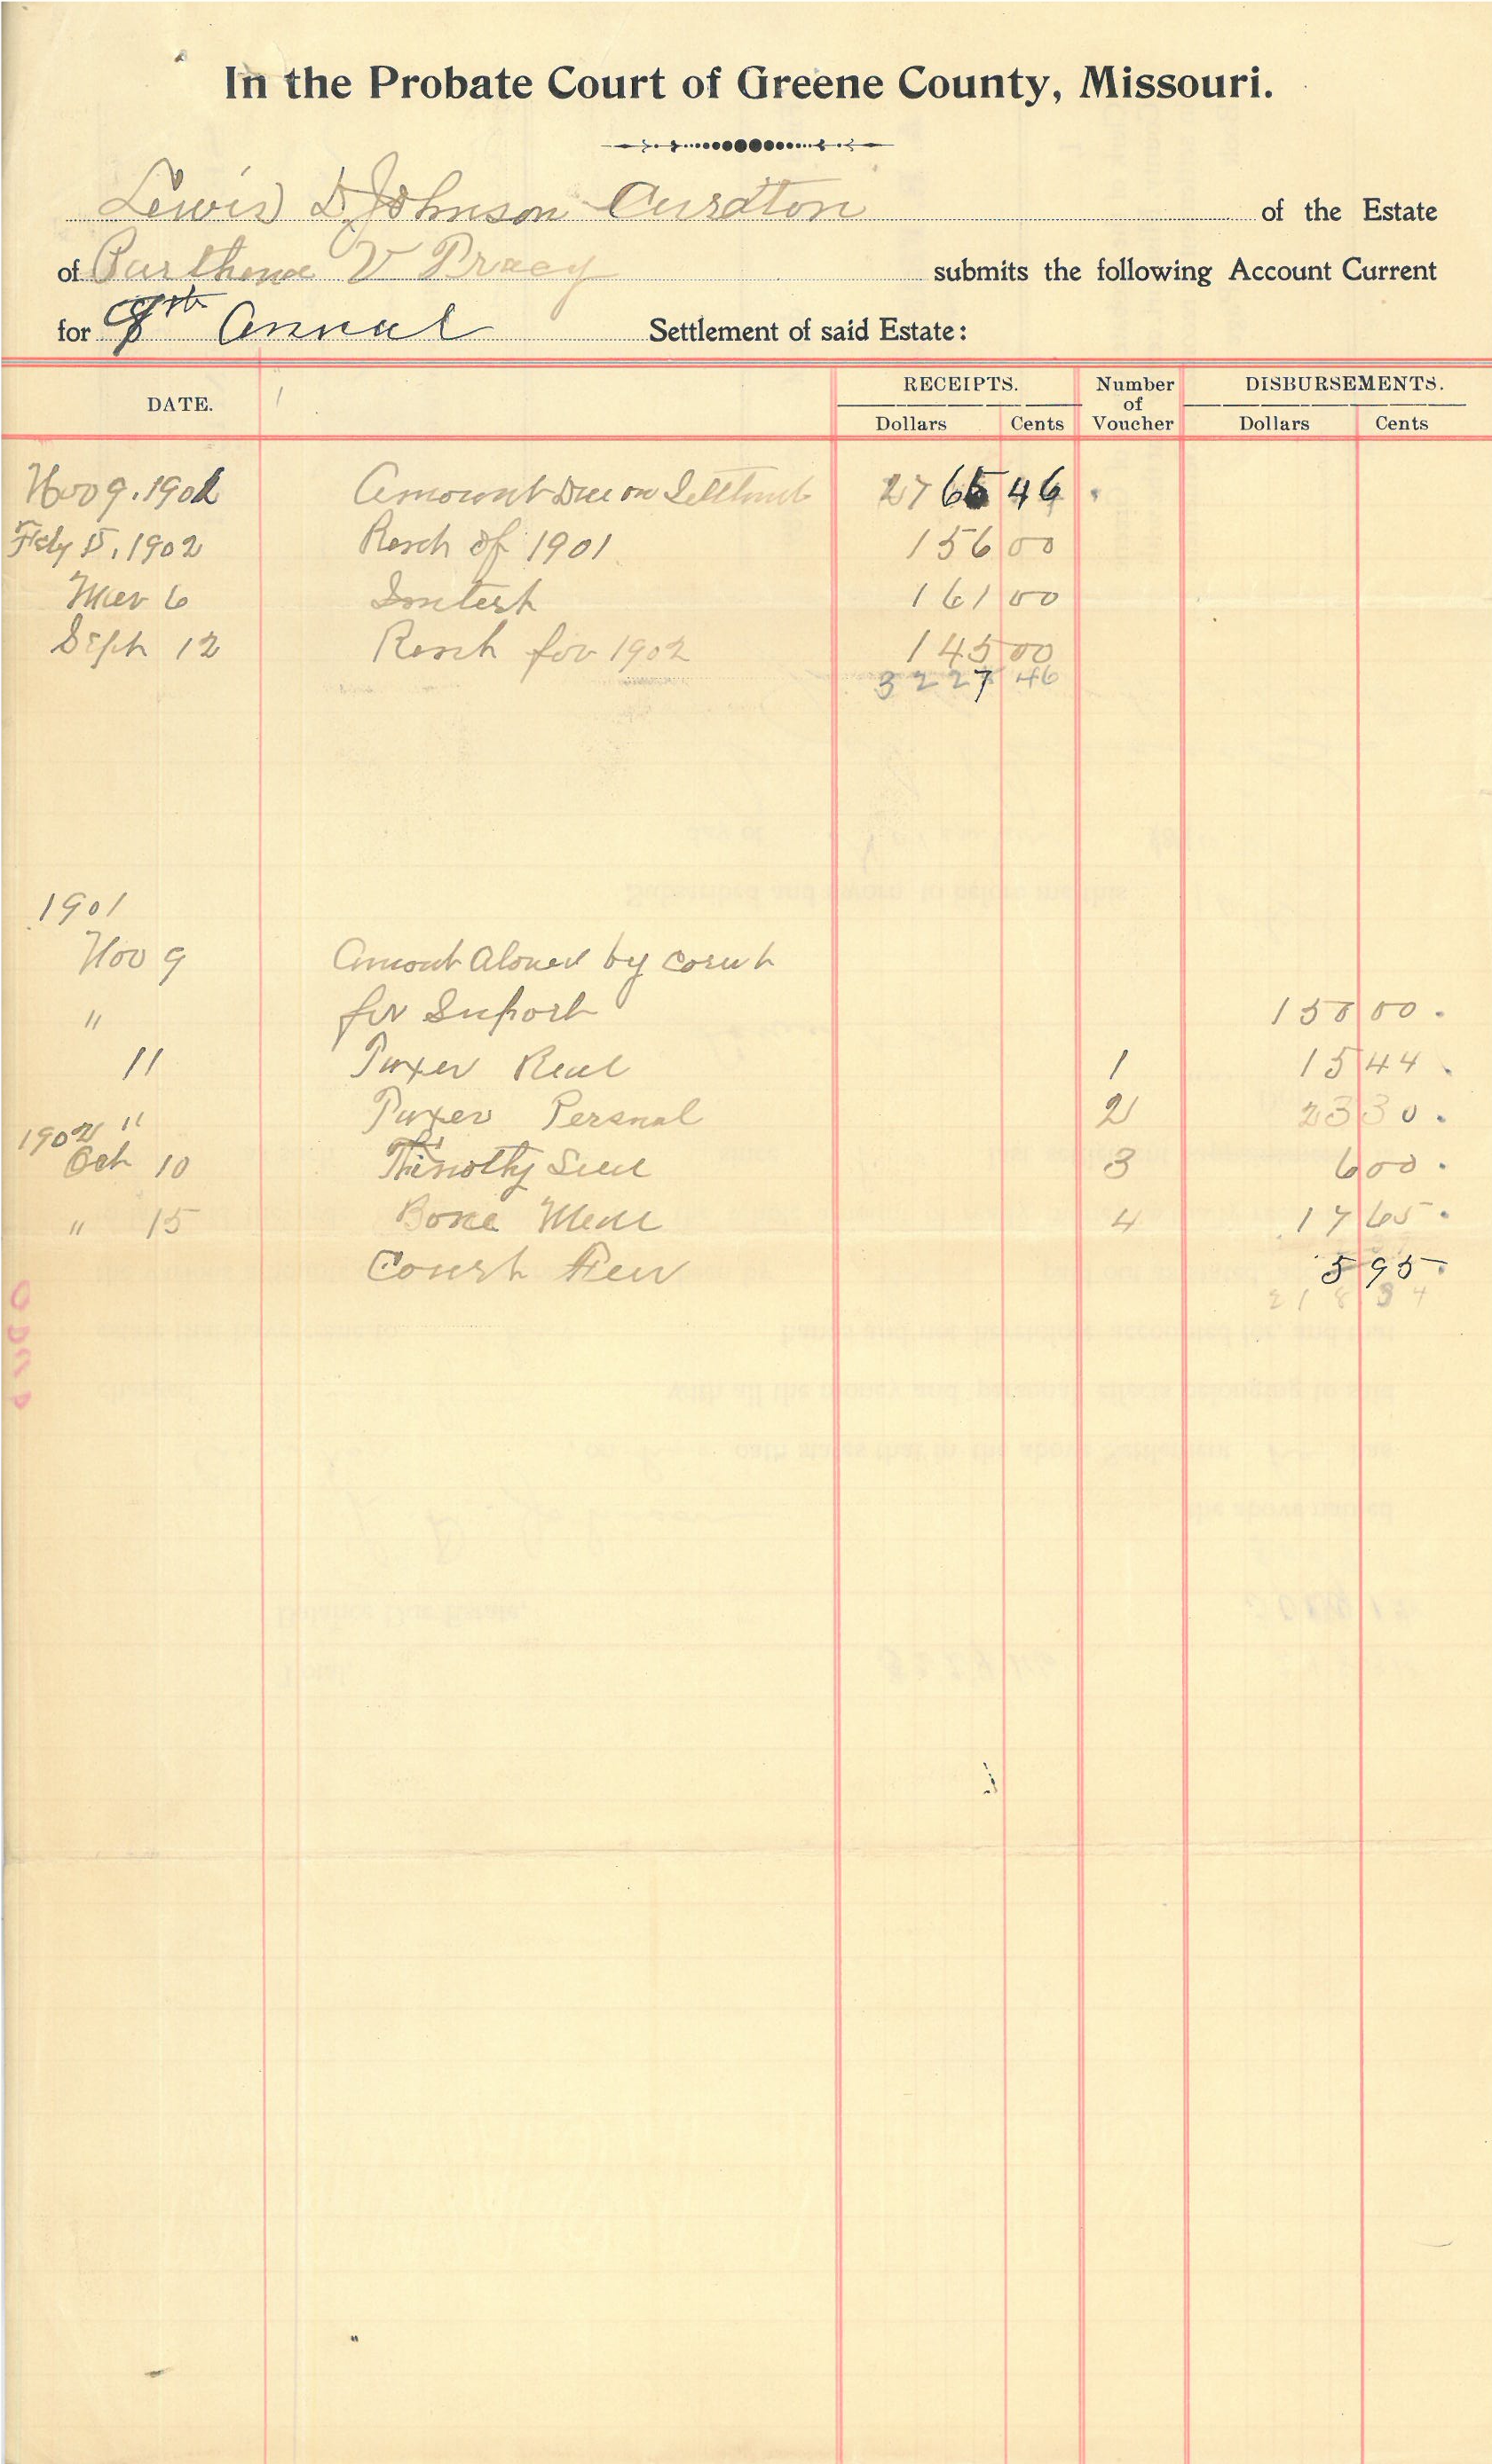 In the Probate Court of Greene County, Missouri.
Lewis D. Johnson Curatton of the Estate
of Parthena V Tracy submits the following Account Current
for 8th Annual Settlement of said Estate:
DATE. RECEIPTS. Number of Voucher DISBURSEMENTS.
Dollars Cents Dollars Cents
Nov 9. 1901 Amount Due on Settlment 2765 46
Feby 5, 1902 Rent of 1901 156 00
Mar 6 Intest 161 00
Sept 12 Rent for 1902 145 00
3227 46
1901
Nov 9 Amout Aloued by Court
" for Suport 150 00.
11 Taxes Real 1 15 44.
" Taxes Persnal 2 23 30.
1902
Oct 10 Thimothy Seed 3 6 00.
" 15 Bone Meal 4 17 65.
Court Fees 5 95.
218 34